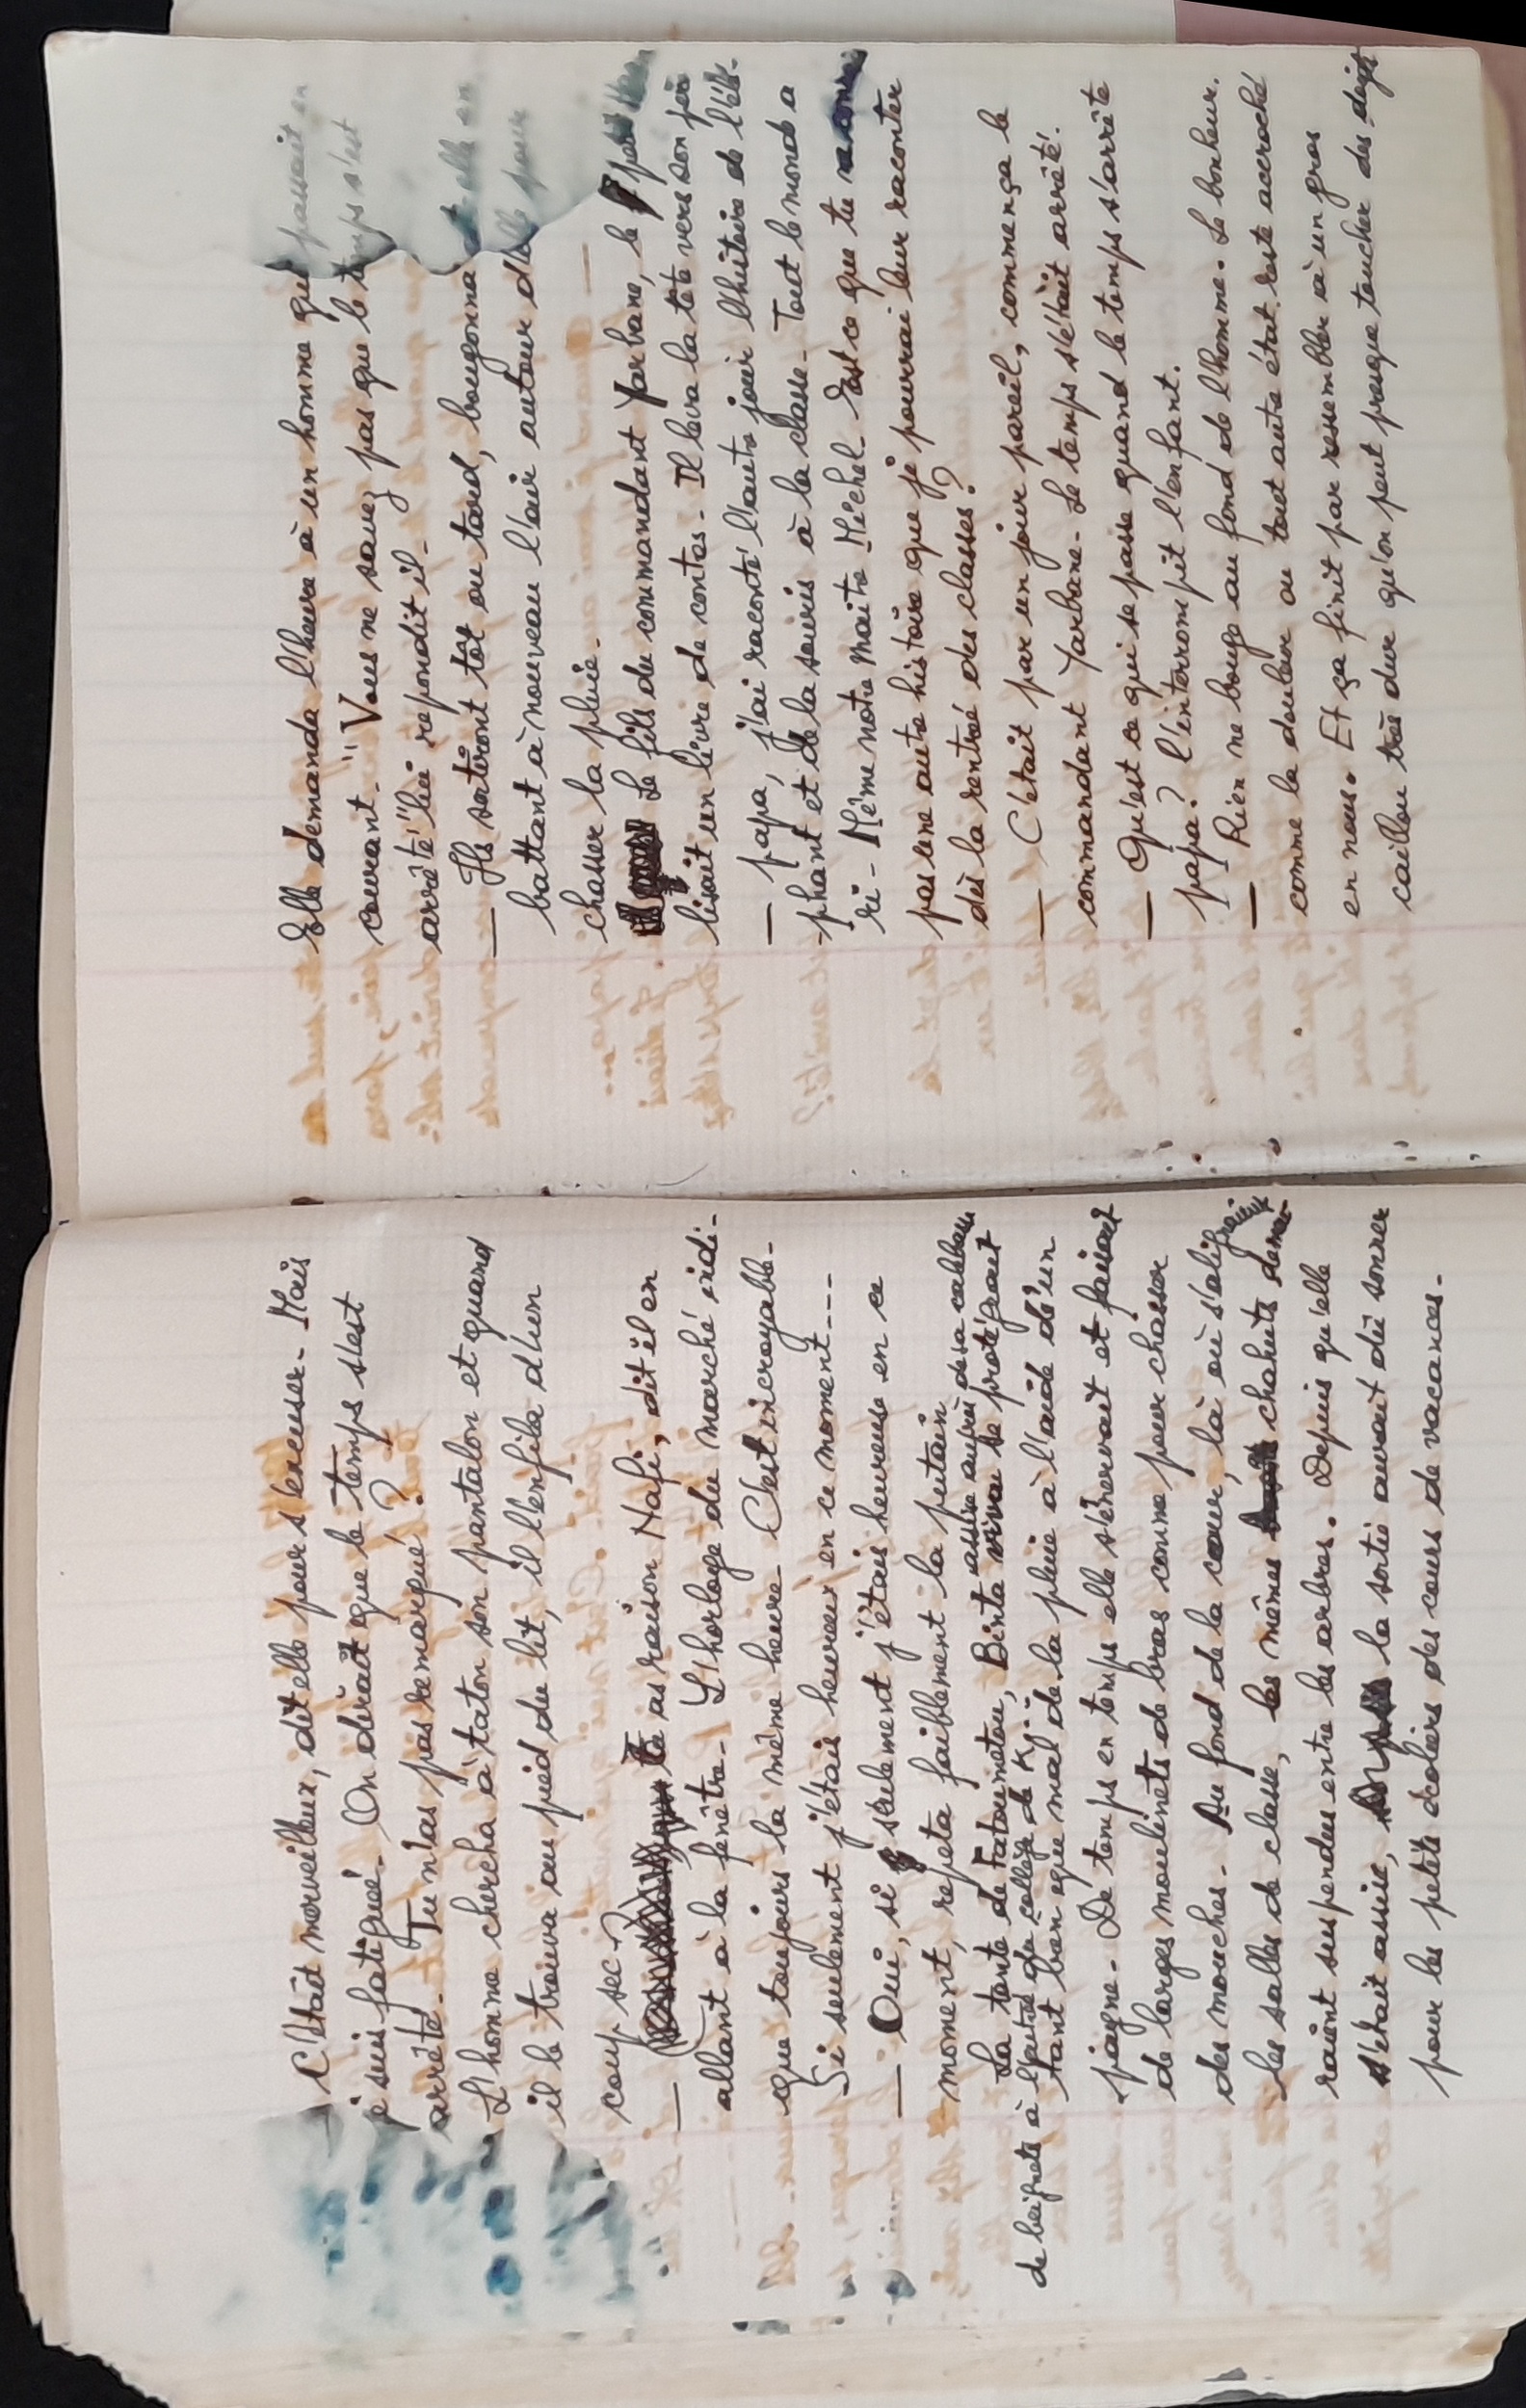 — C'était merveilleux, dit elle pour s'excuser. Mais
je suis fatiguée. On dirait que le temps s'est
arrêté. — Tu n'as pas remarqué ?
L'homme chercha à taton son pantalon et quand
il le trouva au pied du lit, il l'enfila d'un
coup sec.
— tu as raison Nafi, dit il en
allant à la fenêtre. L'horloge du marché indi-
que toujours la même heure. C'est incroyable.
Si seulement j'étais heureux en ce moment...
— Oui, si seulement j'étais heureuse en ce
moment, repeta faiblement la putain
La tante de Fatoumatou, Binta assise auprès de sa calebasse
de beignets à l'autre du collège de K... se protégeant
tant bien que mal de la pluie à l'aide d'un
pagne. De temps en temps elle s'énervait et faisait
de larges moulinets de bras comme pour chasser
des mouches. Au fond de la cour, là où s'alignaient
les salles de classe, les mêmes chahuts demeu-
raient suspendus entre les arbres. Depuis qu'elle
s'était assise, la sortie aurait dû sonner
pour les petits écoliers des cours de vacances.
Elle demanda l'heure à un homme qui passait en
courant. "Vous ne savez pas que le temps s'est
arrêté" lui repondit il.
— Ils sortiront tôt ou tard, bougonna t elle en
battant à nouveau l'air autour d'elle pour
chasser la pluie.
Le fils du commandant Yarbane, le petit
lisait un livre de contes. Il leva la tête vers son père
— papa, j'ai raconté l'autre jour l'histoire de l'élé-
phant et de la souris à la classe. Tout le monde a
ri. Même notre maître Michel. Est ce que tu
pas une autre histoire que je pourrai leur raconter
dès la rentrée des classes ?
— C'était par un jour pareil, commença le
commandant Yarbane. Le temps s'était arrêté.
— Qu'est ce qui se passe quand le temps s'arrête
papa ? l'interrompit l'enfant.
— Rien ne bouge au fond de l'homme. Le bonheur
comme la douleur ou tout autre état reste accroché
en nous. Et ça finit par ressembler à un gros
caillou très dur qu'on peut presque toucher des doigts